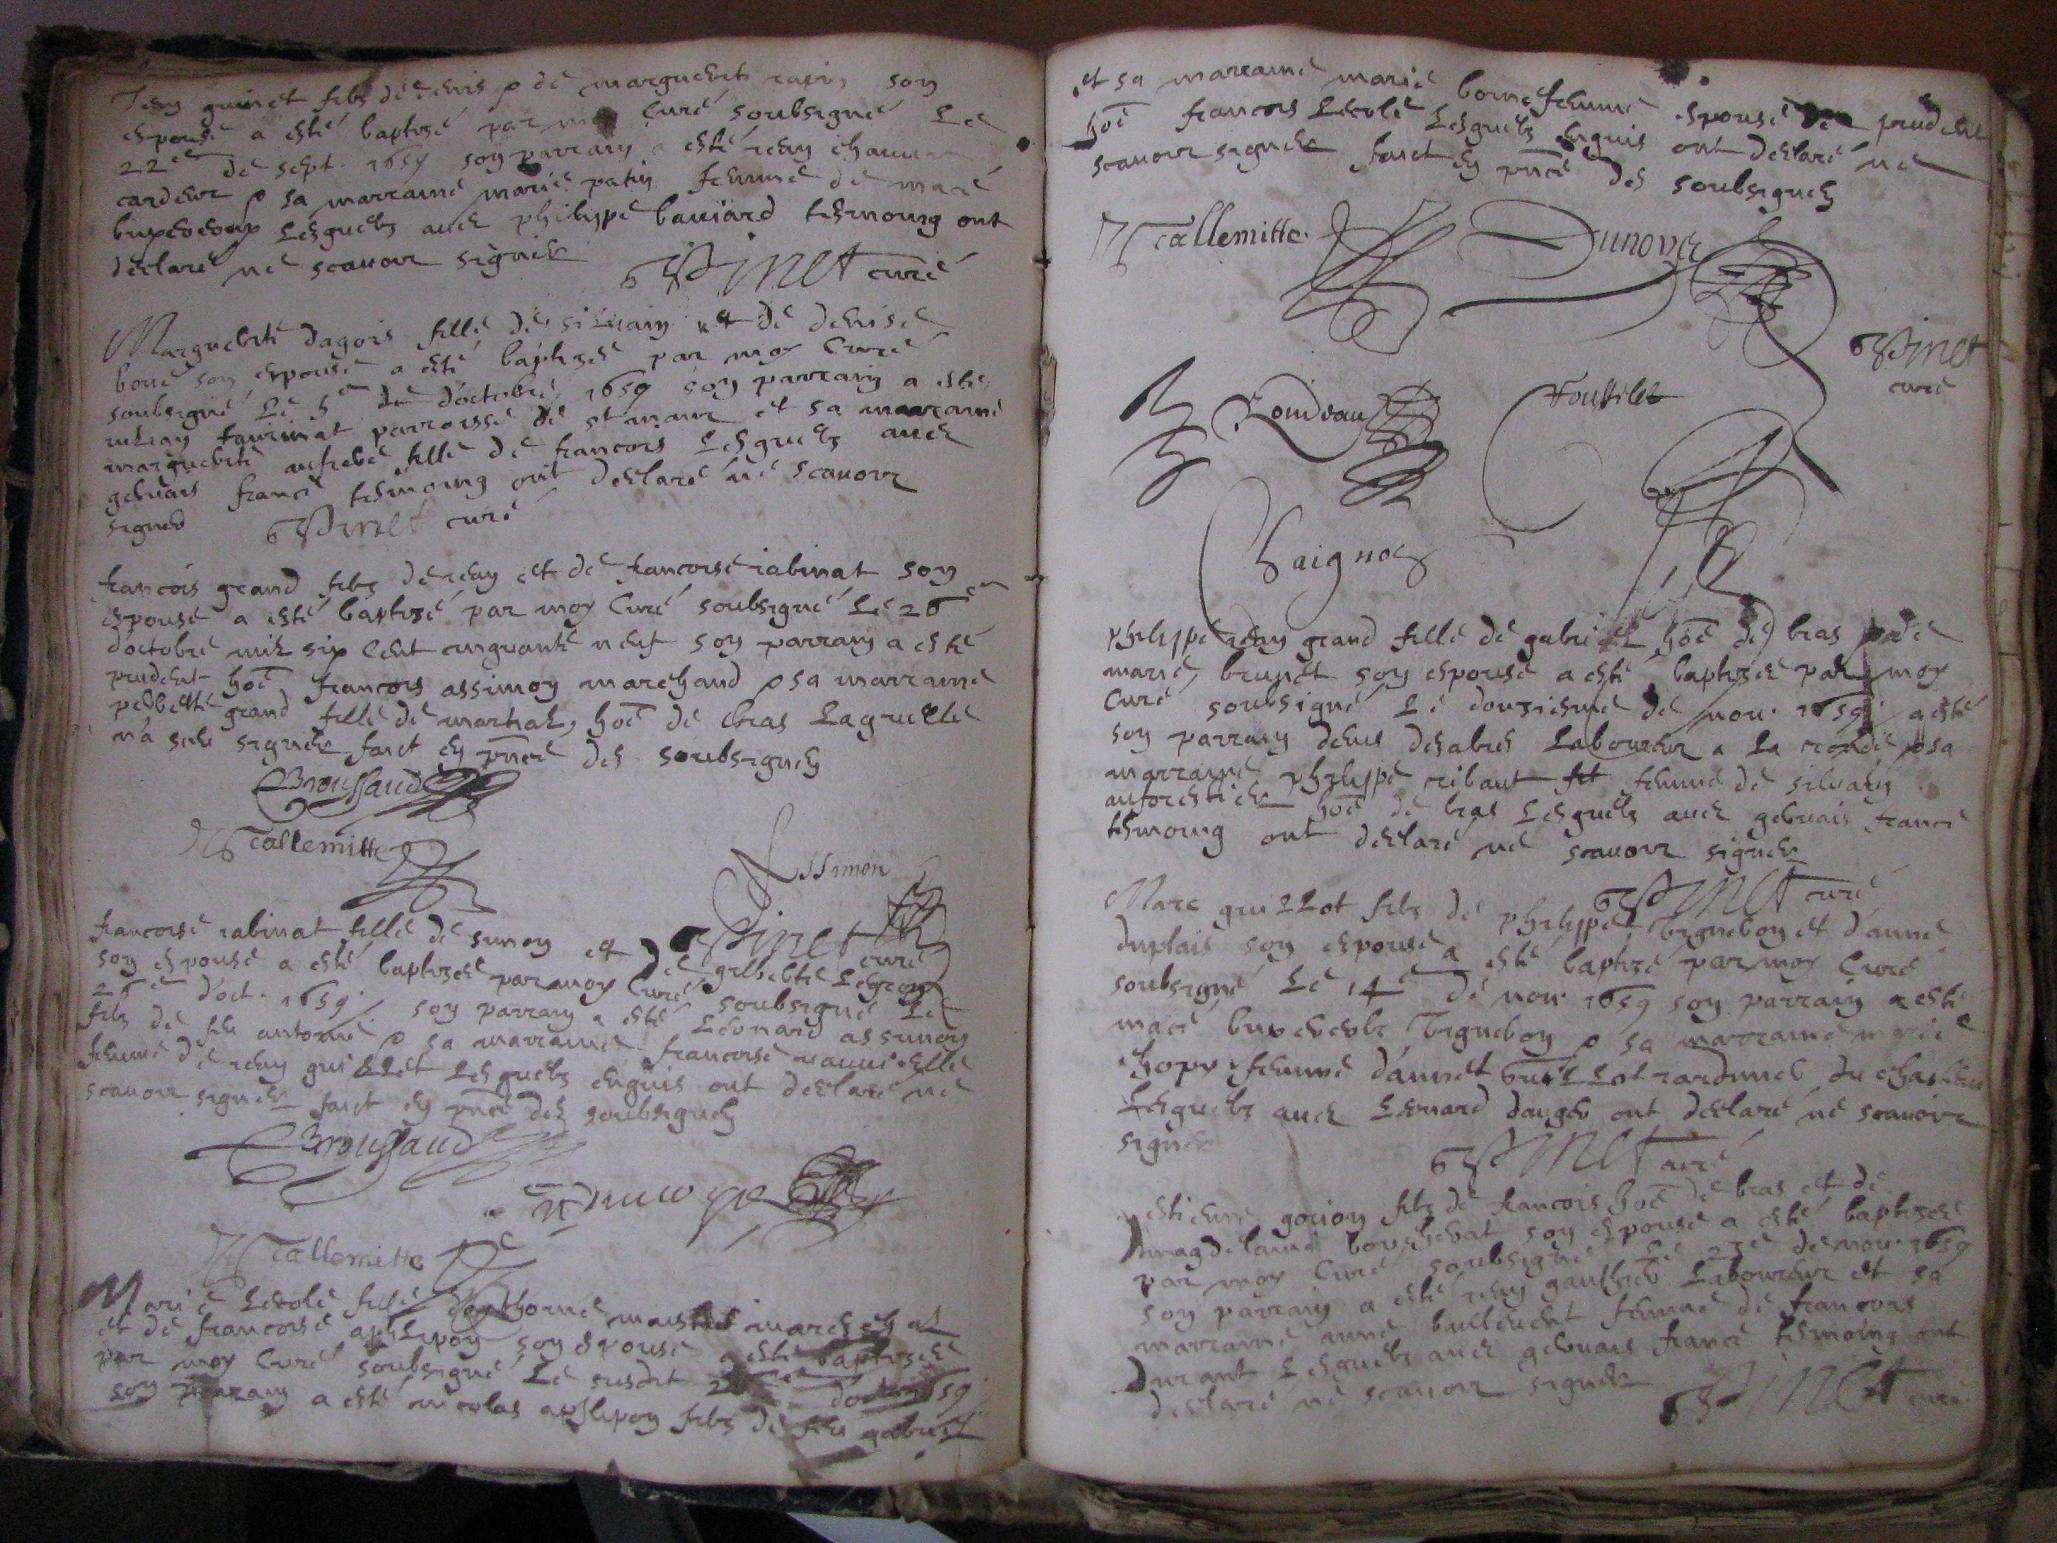 Jean guinet filz de denis & de marguerite son
espouse a esté baptizé par moy Curé soubsigné Le
22e de sept. 1659 son parrain a esté Jean
cardeur & sa marraine marie patin femme de
Lesquelz avec philippe bauiard tesmoing ont
déclaré ne scauoir signer
Pinet curé
Marguerite dagois fille de siluain et de denise
boué son espouse a esté baptizée par moy Curé
soubsigné Le 5e d'octobre 1659 son parrain a esté
taurinat parroisse de st maur et sa marraine
marguerite fille de francois Lesquelz avec
geruais france tesmoing ont déclaré ne scauoir
signer Pinet curé
francois grand filz de Jean et de francoise rabinat son
espouse a esté baptizé par moy Curé soubsigné Le 26e
d'octobre mil six Cent cinquante neuf son parrain a esté
prudent hoe francois assimon marchand & sa marraine
perrette grand fille de martial hoe de bras Laquelle
n'a sceu signer faict en pnce des soubsignez
Broussaud
Tallemitte
Assimon
Pinet curé
francoise rabinat fille de simon et de gilberte
son espouse a esté baptizée par moy Curé soubsigné Le
26e d'oct. 1659 son parrain a esté Leonard assimon
filz de feu antoine & sa marraine francoise
femme de Jean guillet Lesquelz enquis ont déclaré ne
scauoir signer faict en pnce des soubsignez
Broussaud
Tallemitte
Marie Lecole fille d'anthoine
et de francoise aphlipon son espouse a esté baptizée
par moy Curé soubsigné Le susdit d'octo 1659
son parrain a esté nicolas aphlipon filz de feu gabriel
et sa marraine marie bonefemme espouse de prudent
hoe francois Lecole Lesquelz enquis ont déclaré ne
scauoir signer faict en pnce des soubsignez
Tallemitte Dunoyer
Pinet
curé
Rondeau
Chaignon
philippe Jean grand fille de gabriel hoe de bras & de
marie brunet son espouse a esté baptizée par moy
Curé soubsigné Le douziesme de nou. 1659 a esté
son parrain denis desabres Laboureur a La & sa
marraine philippe ribaut femme de siluain
auforestier hoe de bras Lesquelz avec geruais france
tesmoing ont déclaré ne scauoir signer
Pinet curé
Marc guillot filz de philippe vigneron et d'anne
duplais son espouse a esté baptizé par moy Curé
soubsigné Le 14e de nou. 1659 son parrain a esté
macé vigneron & sa marraine marie
femme d'annet guillot Jardinier du chasteau
Lesquelz avec Leonard ont déclaré ne scauoir
signer
Pinet curé
estienne gorion filz de francois hoe de bras et de
magdelaine son espouse a esté baptizée
par moy Curé soubsigné Le 23e de nou. 1659
son parrain a esté Jean gaultier Laboureur et sa
marraine anne femme de francois
durant Lesquelz avec geruais france tesmoing ont
déclaré ne scauoir signer Pinet curé